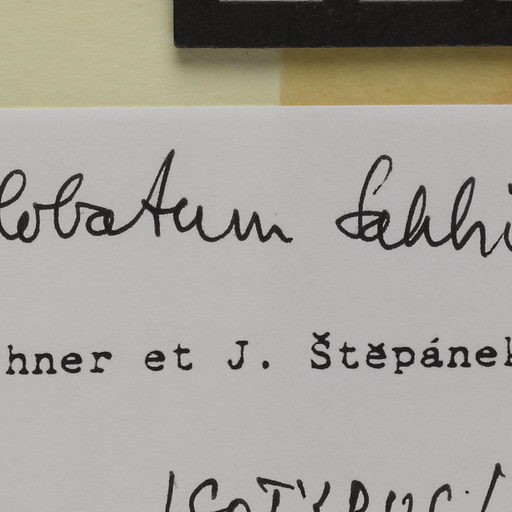 lobatum Sahhi
hner et J. Štěpánek
ISOTYPUS!